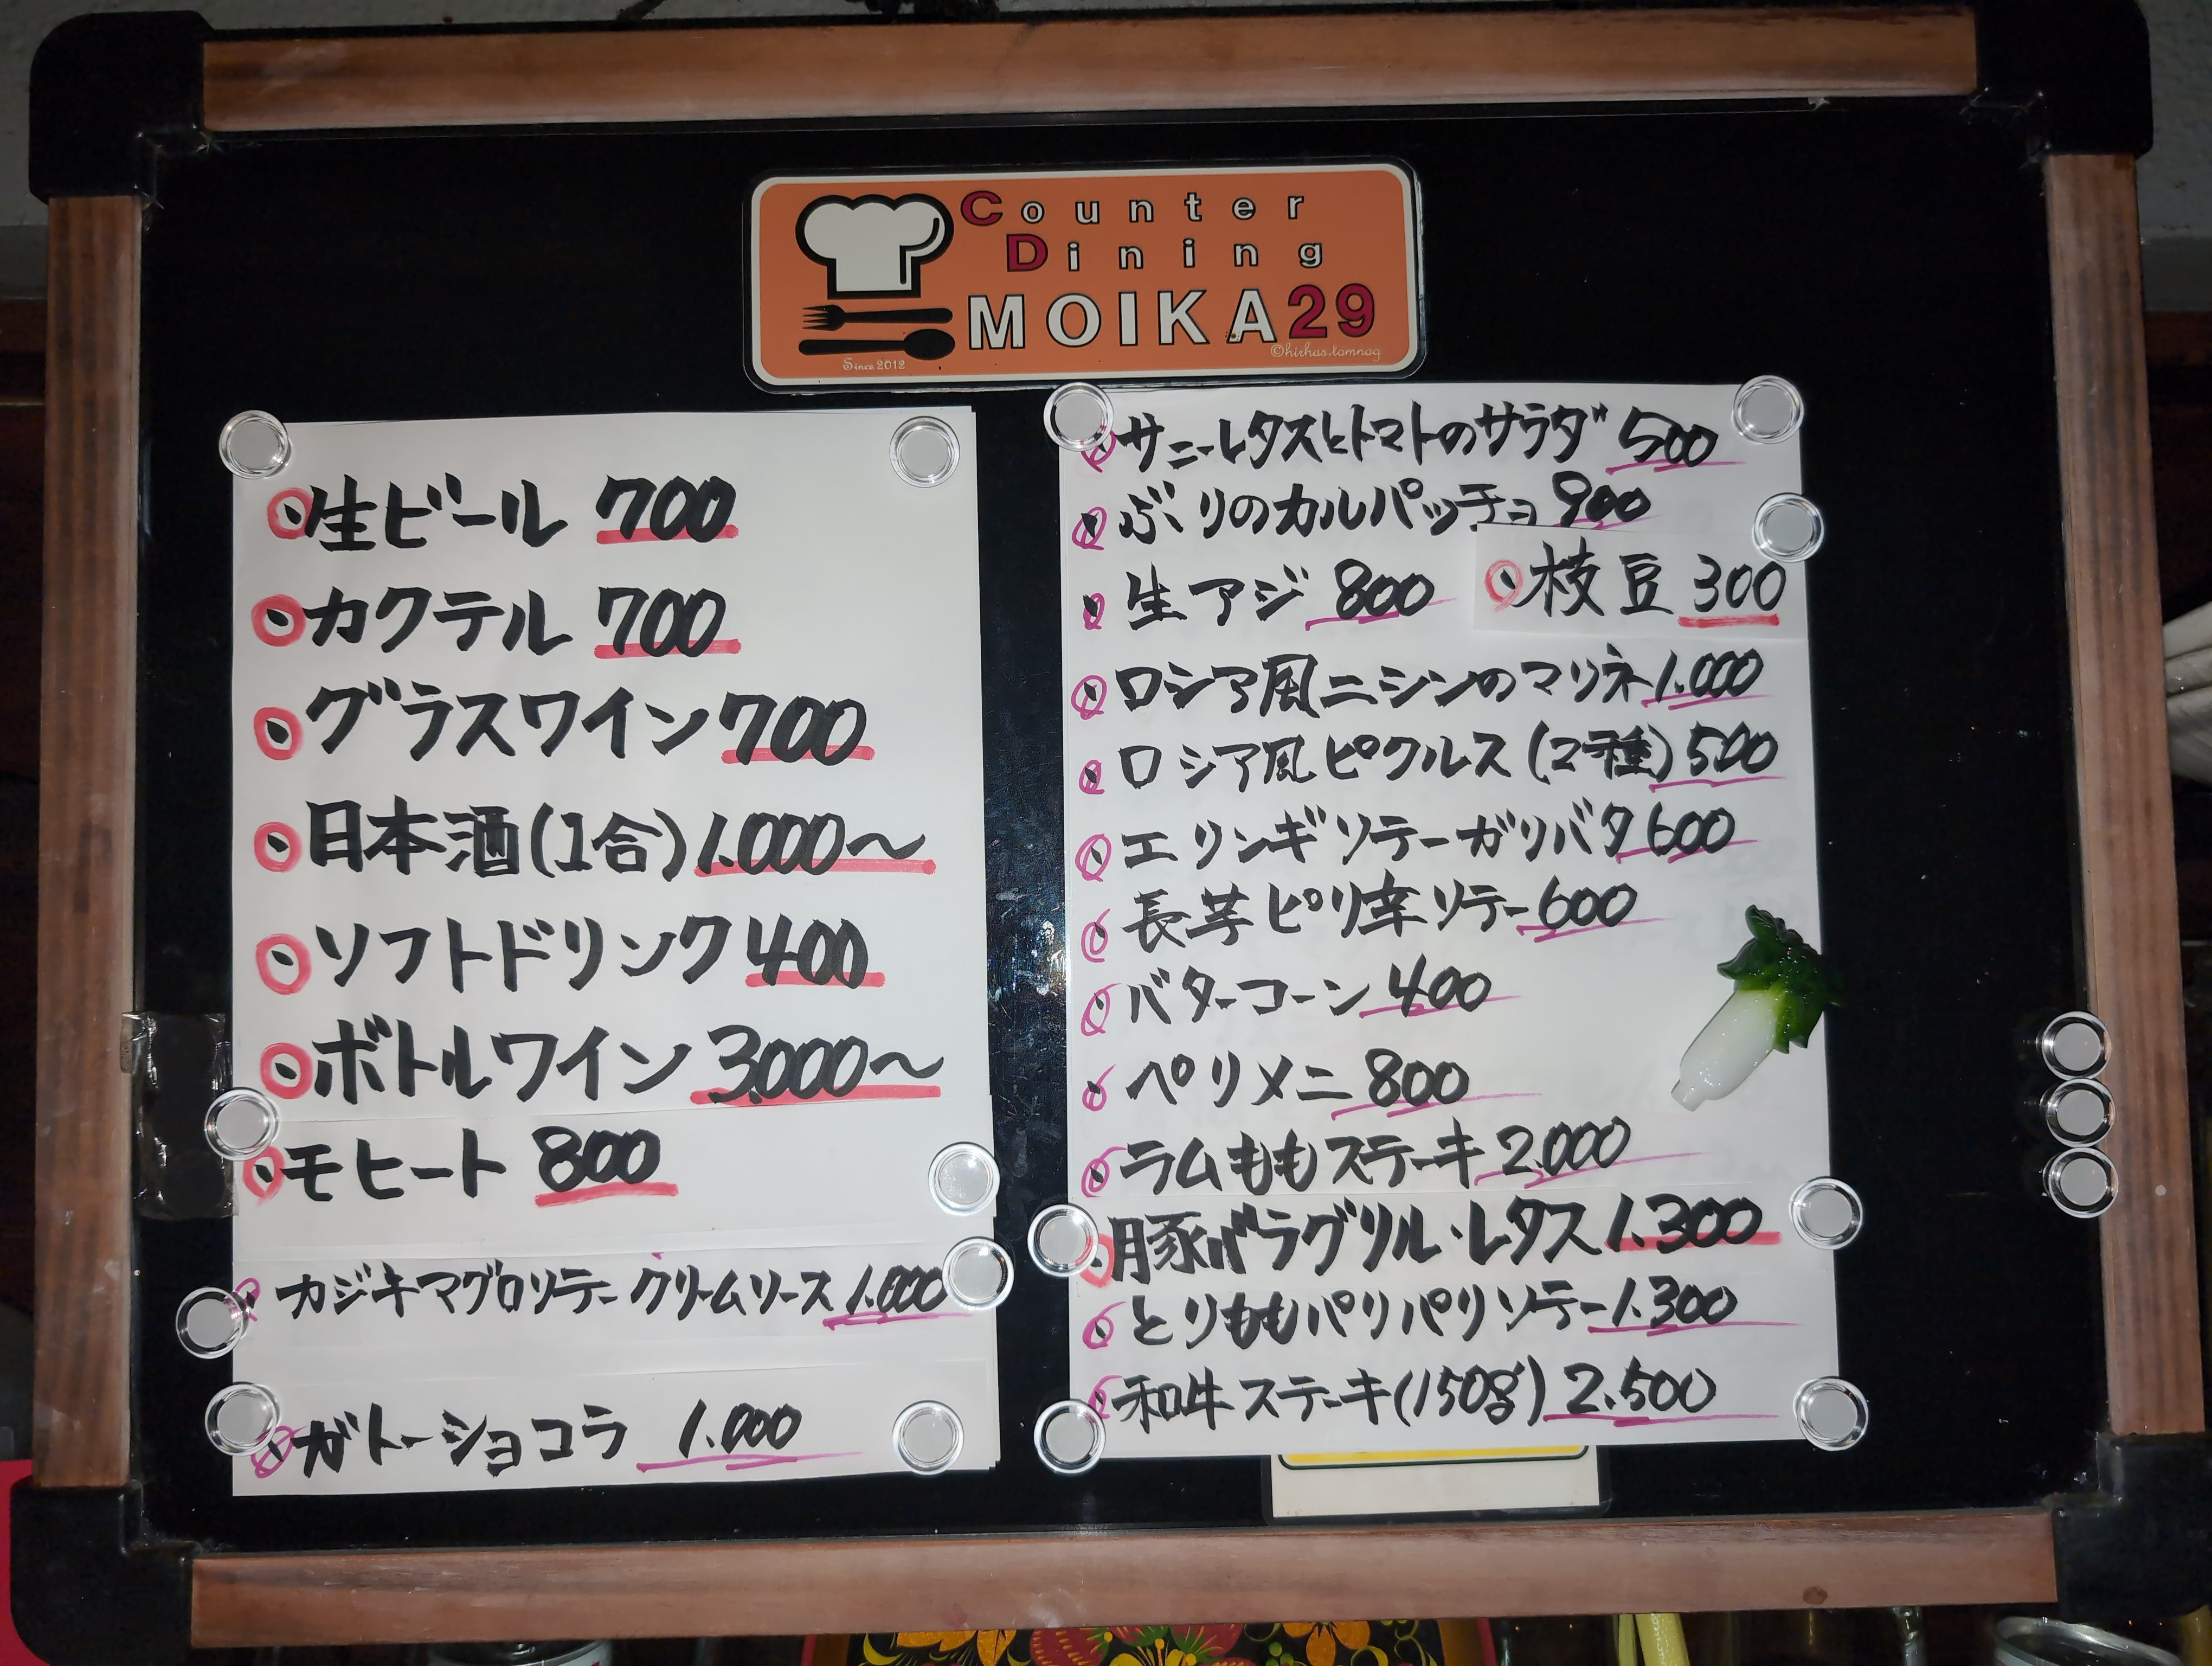 Counter
Dining
MOIKA29
Since 2012
©hirhas.tomnag
生ビール 700
カクテル 700
グラスワイン 700
日本酒(1合) 1.000～
ソフトドリンク 400
ボトルワイン 3.000～
モヒート 800
カジキマグロソテー クリームソース 1.000
ガトーショコラ 1.000
サニーレタスとトマトのサラダ 500
ぶりのカルパッチョ 900
生アジ 800
枝豆 300
ロシア風ニシンのマリネ 1.000
ロシア風ピクルス(2種) 500
エリンギソテーガリバタ 600
長芋ピリ辛ソテー 600
バターコーン 400
ペリメニ 800
ラムももステーキ 2.000
豚バラグリル・レタス 1.300
とりももパリパリソテー 1.300
和牛ステーキ(150g) 2.500